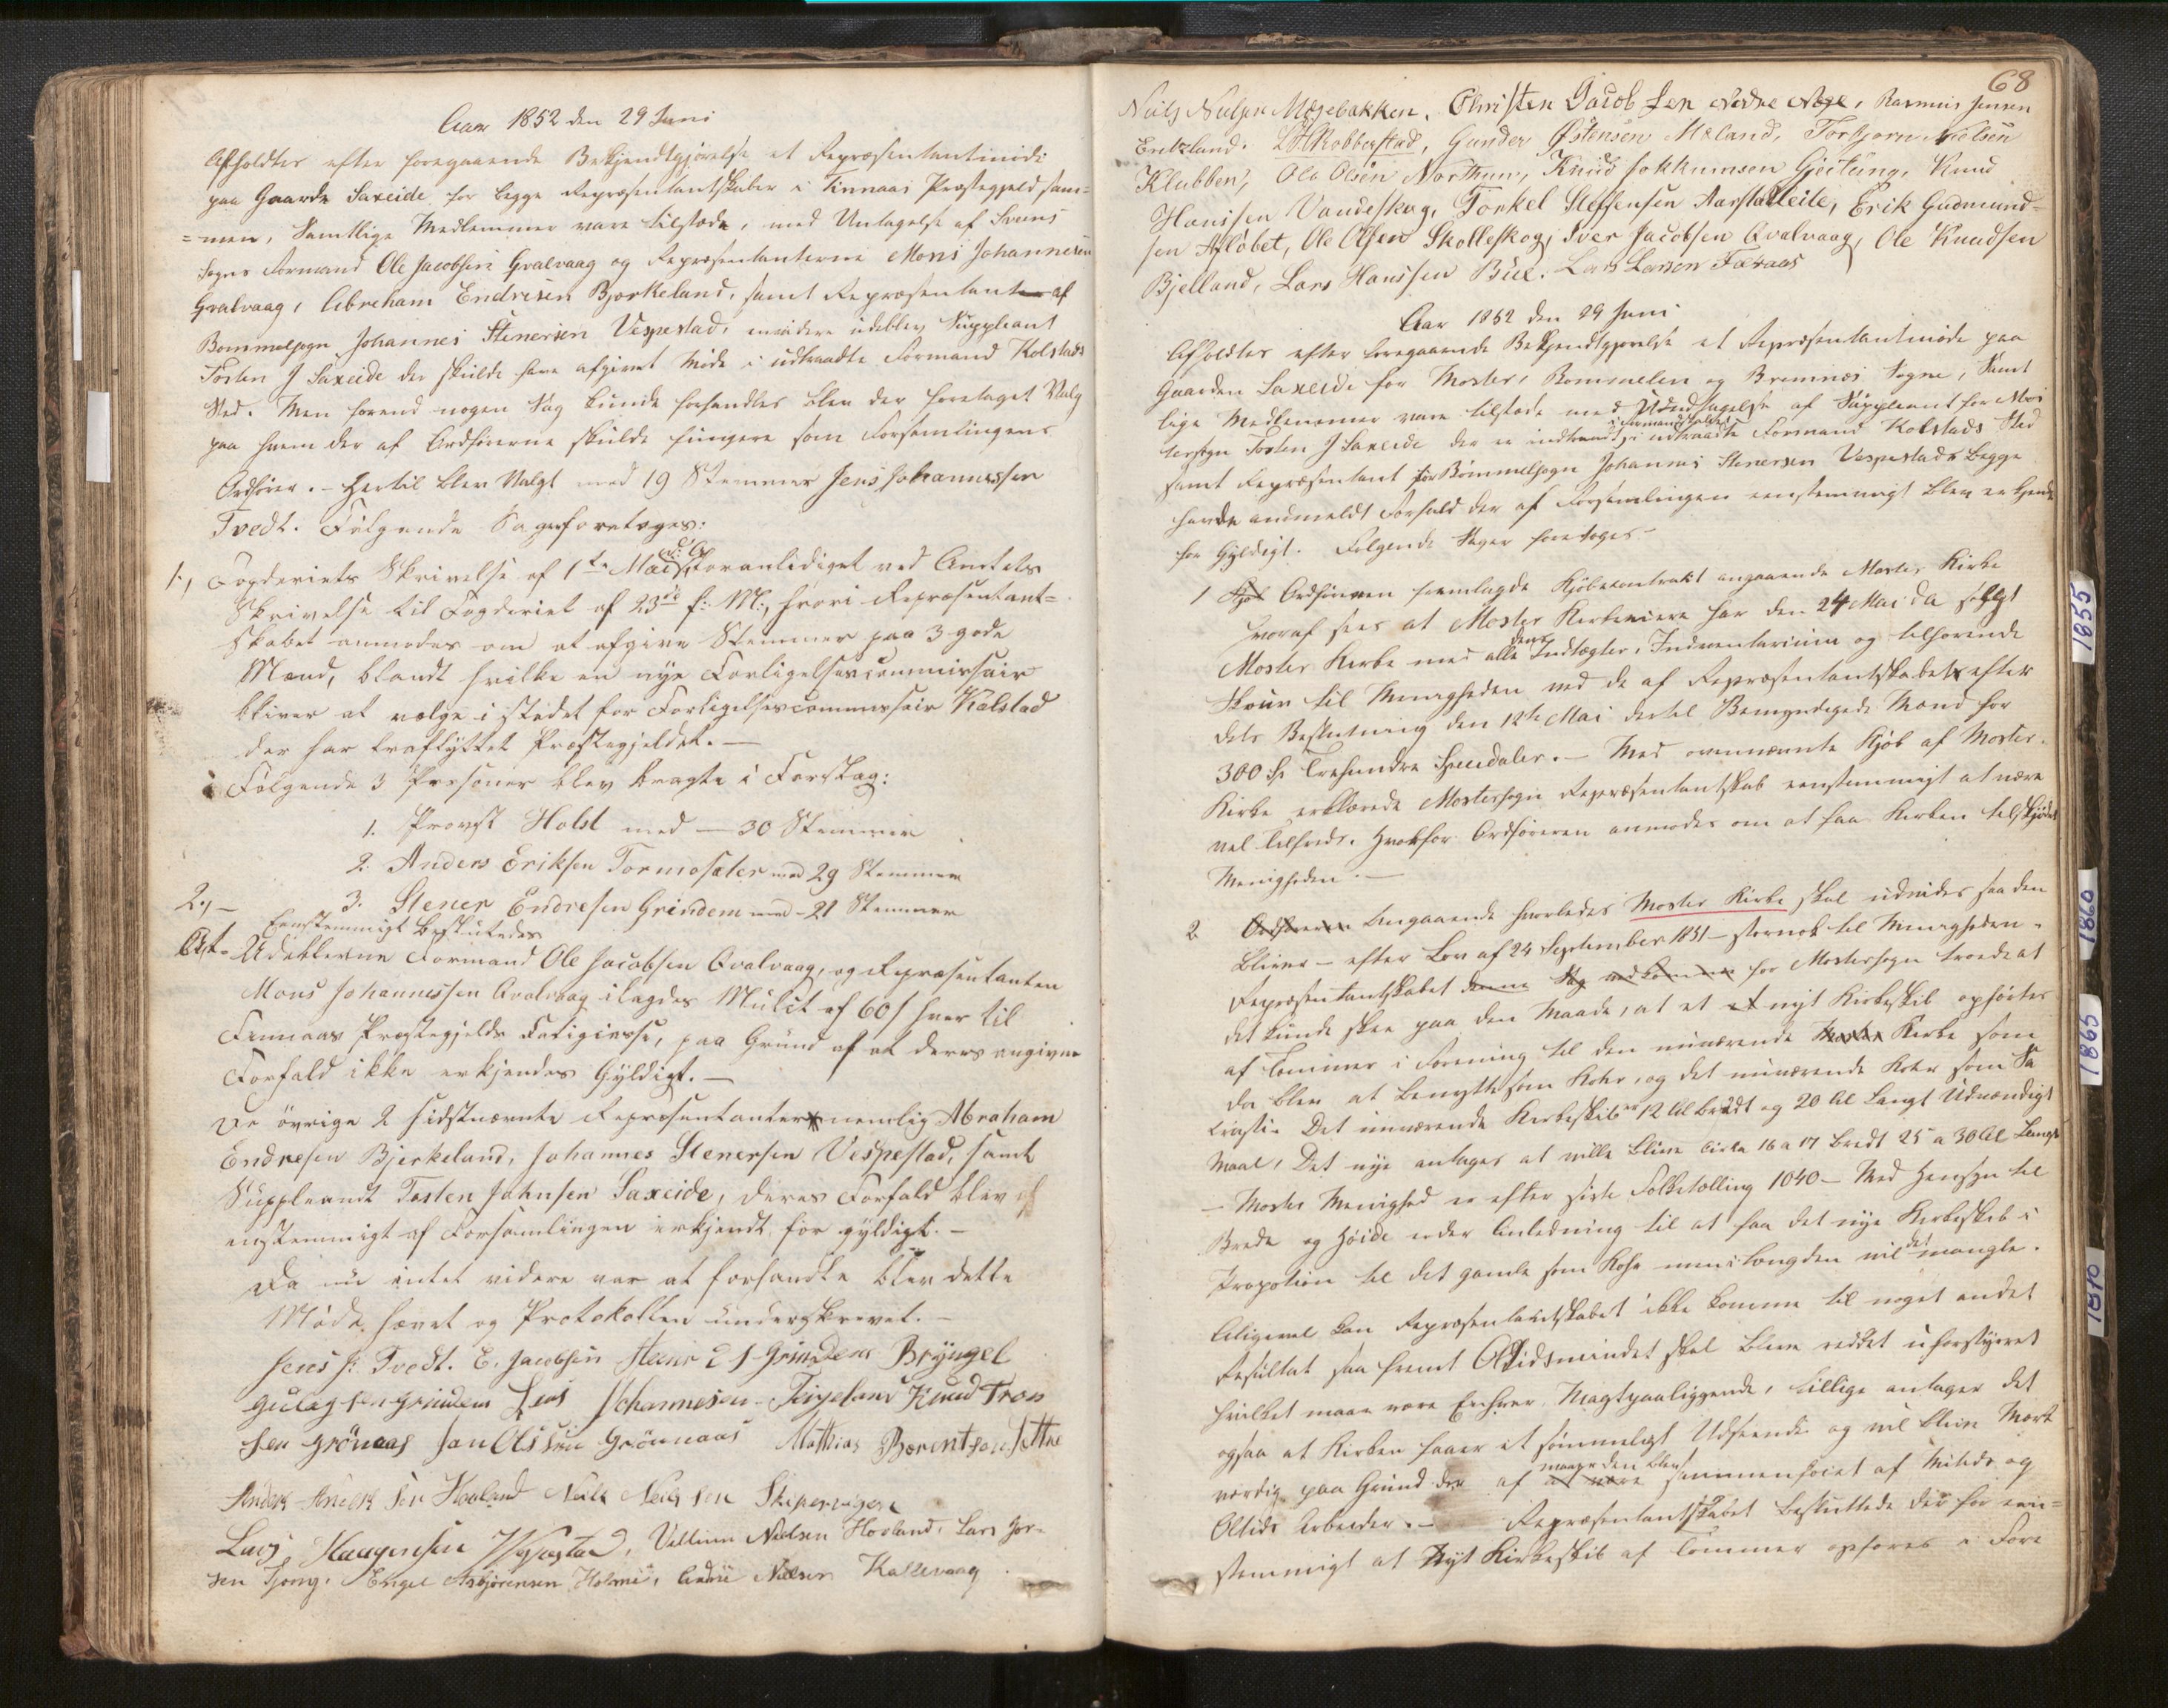 Aar 1852 den 29 Juni
Afholdtes efter foregaaende Bekjendtgjørelse et Repræsentantmøde
paa Gaarde Saxeide for begge Repræsentantskaber i Finnaas Præstegjeld sam=
=men, Samtlige Medlemmer vare tilstæde, med Untagelse af
Sogns Formand Ole Jacobsen Qvalvaag og Repræsentanterne Mons Johannesen
Qvalvaag, Abreham Endresen Bjorkeland, samt Repræsentant af
Bommelsogn Johannes Stenersen Vespestad, udeblev Suppleant
Tosten J Saxeide der skulde have afgivet Møde i udtraadte Formand Kolstads
Sted. Men forend nogen Sag kunde forhandles blev der foretaget Valg
paa hvem der af Ordførerne skulde fungere som Forsamlingens
Ordfører. – Hertil blev Valgt med 19 Stemmer Jens Johannessen
Tvedt. Følgende Sager foretoges:
1., Fogderiets Skrivelse af 1te Mai d: A: foranlediget ved Amtets
Skrivelse til Fogderiet af 23de f: M:, hvori Repræsentant=
skabet anmodes om at afgive Stemmer paa 3 gode
Mænd, blandt hvilke en nye Forligelsescommissair
bliver at vælge i stedet for Forligelsescommissair Kolstad
der har fraflyttet Præstegjeldet. —
Følgende 3 Personer blev bragte i Forslag:
1. Provst Holst med — 30 Stemmer
2. Anders Eriksen Tormosæter med 29 Stemmer
3. Stener Endresen Grindem med – 21 Stemmer
2., –
Eenstemmigt besluttedes
At Udeblevne Formand Ole Jacobsen Qvalvaag, og Repræsentanten
Mons Johannessen Qvalvaag ilagdes Mulct af 60 s hver til
Finnaas Præstegjelds Fatigcasse, paa Grund af at deres angivne
Forfald ikke erkjendes Gyldigt. —
De øvrige 2 sidstnævnte Repræsentanter nemlig Abraham
Endresen Bjerkeland, Johannes Stenersen Vespestad, samt
Suppleandt Tosten Johnsen Saxeide, deres Forfald blev
enstemmigt af Forsamlingen erkjendt for gyldigt. –
Da nu intet videre var at forhandle blev dette
Møde hævet og Protokollen underskrevet. –
Jens J: Tvedt. E. Jacobsen Stener E S Grindem Bryngel
Gulagsen Grindem Jens Johannesen Tveseland Knud Tron
sen Grönaas Jan Olssen Grönnaas Mathias Bærentsen Sttne
Anders Anders sen Hovland Neils Neils sen Skipervigen
Lars Haagensen Vespestad, Vellum Nielsen Hovland, Lars Jør-
sen Tjong. Engel Asbjörensen Holme, Andre Nielsen Kallevaag
68
Neils Neilsen Mæjebakken, Christen Jacob sen Nedre Nøze, Rasmus Jensen
Enelzland. L H Robberstad, Gunder Østensen Mæland, Torbjørn Nielsen
Klubben, Ole Olsen Northun, Knud Jokkumsen Gjeitung, Knud
Hansen Vandeskog, Torkel Steffensen Aarskolleite, Erik Gudmund=
sen Afløbet, Ole Olsen Skolleskog, Iver Jacobsen Qvalvaag, Ole Knudsen
Bjelland, Lars Hanssen Bue. Lars Larsen Færaas
Aar 1852 den 29 Juni
Afholdtes efter foregaaende Bekjendtgjørelse et Repræsentantmøde paa
Gaarden Saxeide for Moster, Bommelen og Bremnæs Sogne, Samt
lige Medlemmer vare tilstæde med Undtagelse af Suppleant for Mos
tersogn Tosten J Saxeide der er indtraadt i formandskabet i udtraadte Formand Kolstads Sted
samt Repræsentant for Bømmelsogn Johannes Stenersen Vespestad begge
havde anmeldt Forfald der af Forsamlingen eenstemmigt blev erkjendt
for Gyldigt. Følgende Sager foretoges –
1 Ordføreren fremlagde Kjøbecontrakt angaaende Moster Kirke
hvoraf sees at Moster Kirkeeiere har den 24 Mai da solgt
Moster Kirke med alle dens Indtægter, Indventarium og tilhørende
Skove til Menigheden ved de af Repræsentantskabet efter
dets Beslutning den 12te Mai dertil Bemyndigede Mænd for
300 Sp Trehundre Speciedaler. – Med ovennævnte Kjøb af Moster
Kirke erklærede Mostersogns Repræsentantskab eenstemmigt at være
vel tilfreds. Hvorfor Ordføreren anmodes om at faa Kirken tilskjødet
Menigheden. —
2 Angaaende hvorledes Moster Kirke skal udvides saa den
bliver – efter Lov af 24 September 1851 – stornok til Menigheden.
Repræsentantskabet for Mostersogn troede at
det kunde skee paa den Maade, at et nyt Kirkeskib opførtes
af Tømmer i Forening til den nuværende Kirke som
da blev at benytte som Kohr, og det nuværende Kohr som Sa
kristi. Det nuværende Kirkeskib er 12 Al bredt og 20 Al langt Udvændigt
Maal, Det nye antages at ville blive Cirka 16 a 17 bredt 25 a 30 Al Længde
– Moster Menighed er efter siste Folketælling 1040 – Med Hensyn til
Brede og Høide er der Anledning til at faa det nye Kirkeskib i
Propotion til det gamle som Kohr men i Længden vil det mangle.
Alligevel kan Repræsentantskabet ikke komme til noget andet
Resultat saa fremt Oltidsmindet skal blive reddet uforstyrret
hvilket maae være Enhver Magtpaaliggende, tillige antager det
ogsaa at Kirken faaer et sømmeligt Udseende og vil blive Mærk
værdig paa Grund af maaden blev sammenføiet af Nutids og
Oltids Arbeider. – Repræsentantskabet besluttede derfor een=
stemmigt at Nyt Kirkeskib af Tømmer opføres i Fore
1855
1860
1865
1870